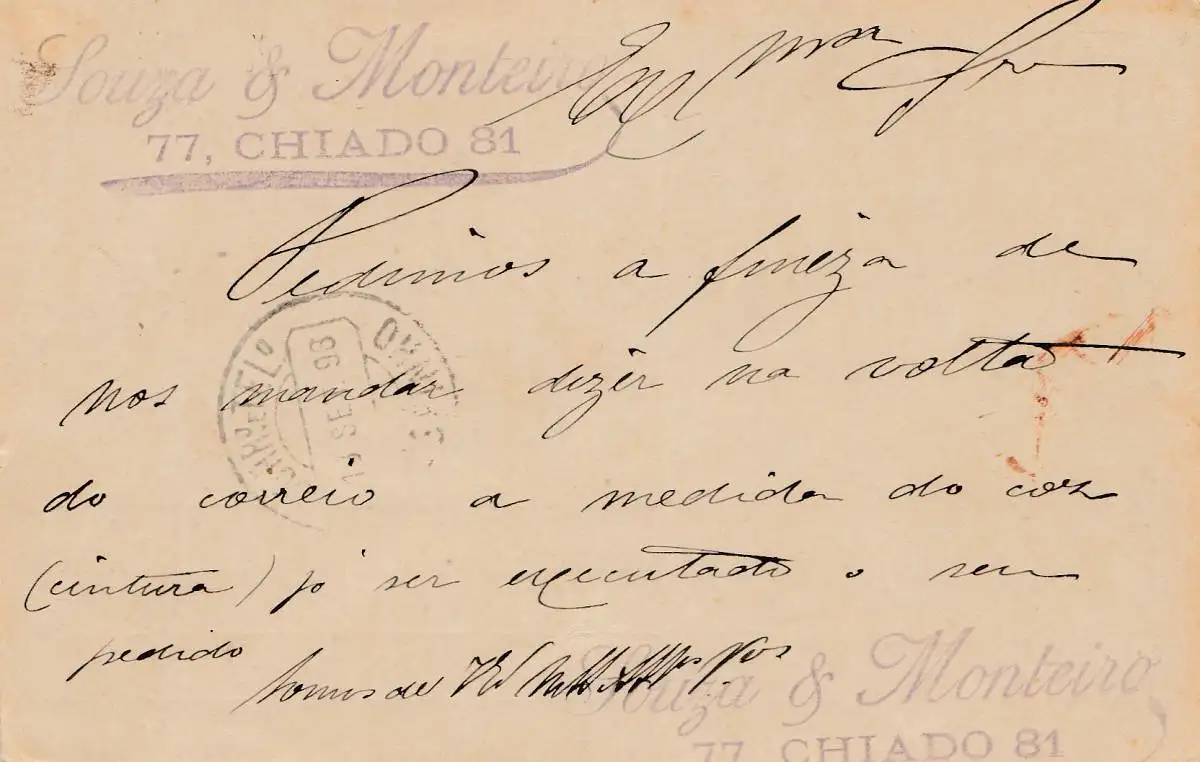 Souza & Monteiro
77, CHIADO 81
Exmo Snr
Pedimos a fineza de
nos mandar dizer na volta
do correio a medida do coz
(cintura) pª ser executado o seu
pedido
Somos de V. Sª
Souza & Monteiro
77, CHIADO 81
98